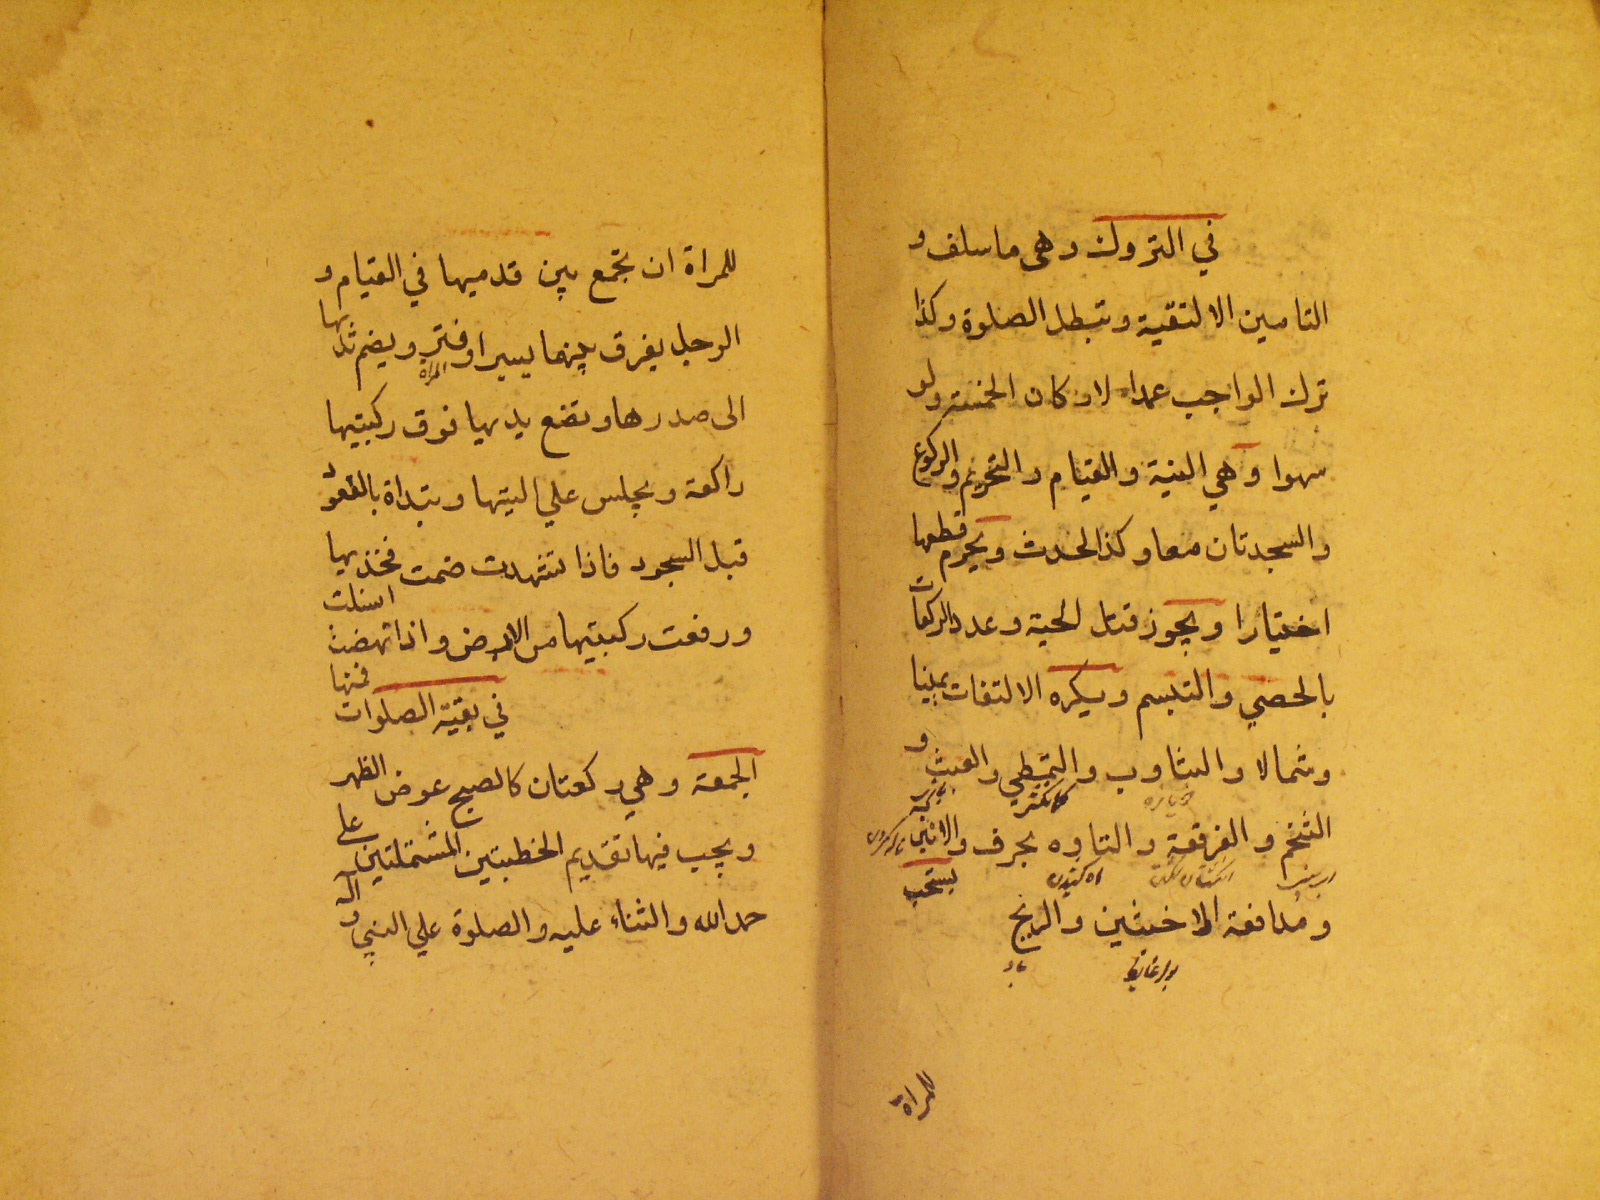 في التروك وهى ما سلف و
التامين الا لتقية وتبطل الصلوة وكذا
ترك الواجب عمدا لا وكان الخمسة ولو
سهوا وهي النية والقيام والتحريم والركوع
والسجدتان معا وكذا الحدث ويحرم قطعها
اختيارا ويجوز قتل الحية وعدد الركعات
بالحصي والتبسم ويكره الالتفات يمينا
وشمالا والتثاوب والتمطي والعبث و
خيازه
التنخم والفرقعة والتاوه بحرف والانين
اه كتيدن
يستحب
ومدافعة الاخبثين والريح
باد
للمراة
للمراة ان تجمع بين قدميها في القيام و
الرجل يفرق بينهما يسيرا او فتر ويضم ثديها
المراة
الى صدرها وتضع يديها فوق ركبتيها
راكعة ويجلس علي اليتها وتبداة بالقعود
قبل السجود فاذا تشهدت ضمت فخذيها
ورفعت ركبتيها من الارض واذا نهضت انسلت
في بقية الصلوات فمنها
الجمعة وهي ركعتان كالصبح عوض الظهر
ويجب فيها تقديم الخطبتين المشتملتين على
حمد الله والثناء عليه والصلوة علي النبي واله